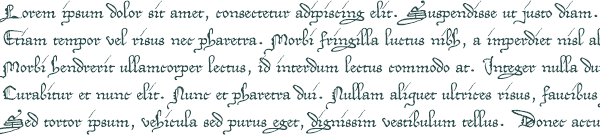 Lorem ipsum dolor sit amet, consectetur adipiscing elit. Suspendisse ut justo diam.
Etiam tempor vel risus nec pharetra. Morbi fringilla luctus nibh, a imperdiet nisl al
Morbi hendrerit ullamcorper lectus, id interdum lectus commodo at. Integer nulla du
Curabitur et nunc elit. Nunc et pharetra dui. Nullam aliquet ultrices risus, faucibus
Sed tortor ipsum, vehicula sed purus eget, dignissim vestibulum tellus. Donec accu